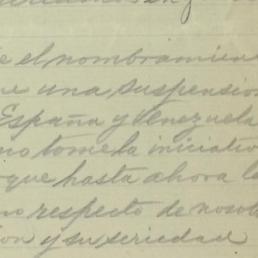 e el nombramien
e una suspensión
España y Venezuela
no tome la iniciativ
que hasta ahora le
no respecto de nosot
ion y su seriedad